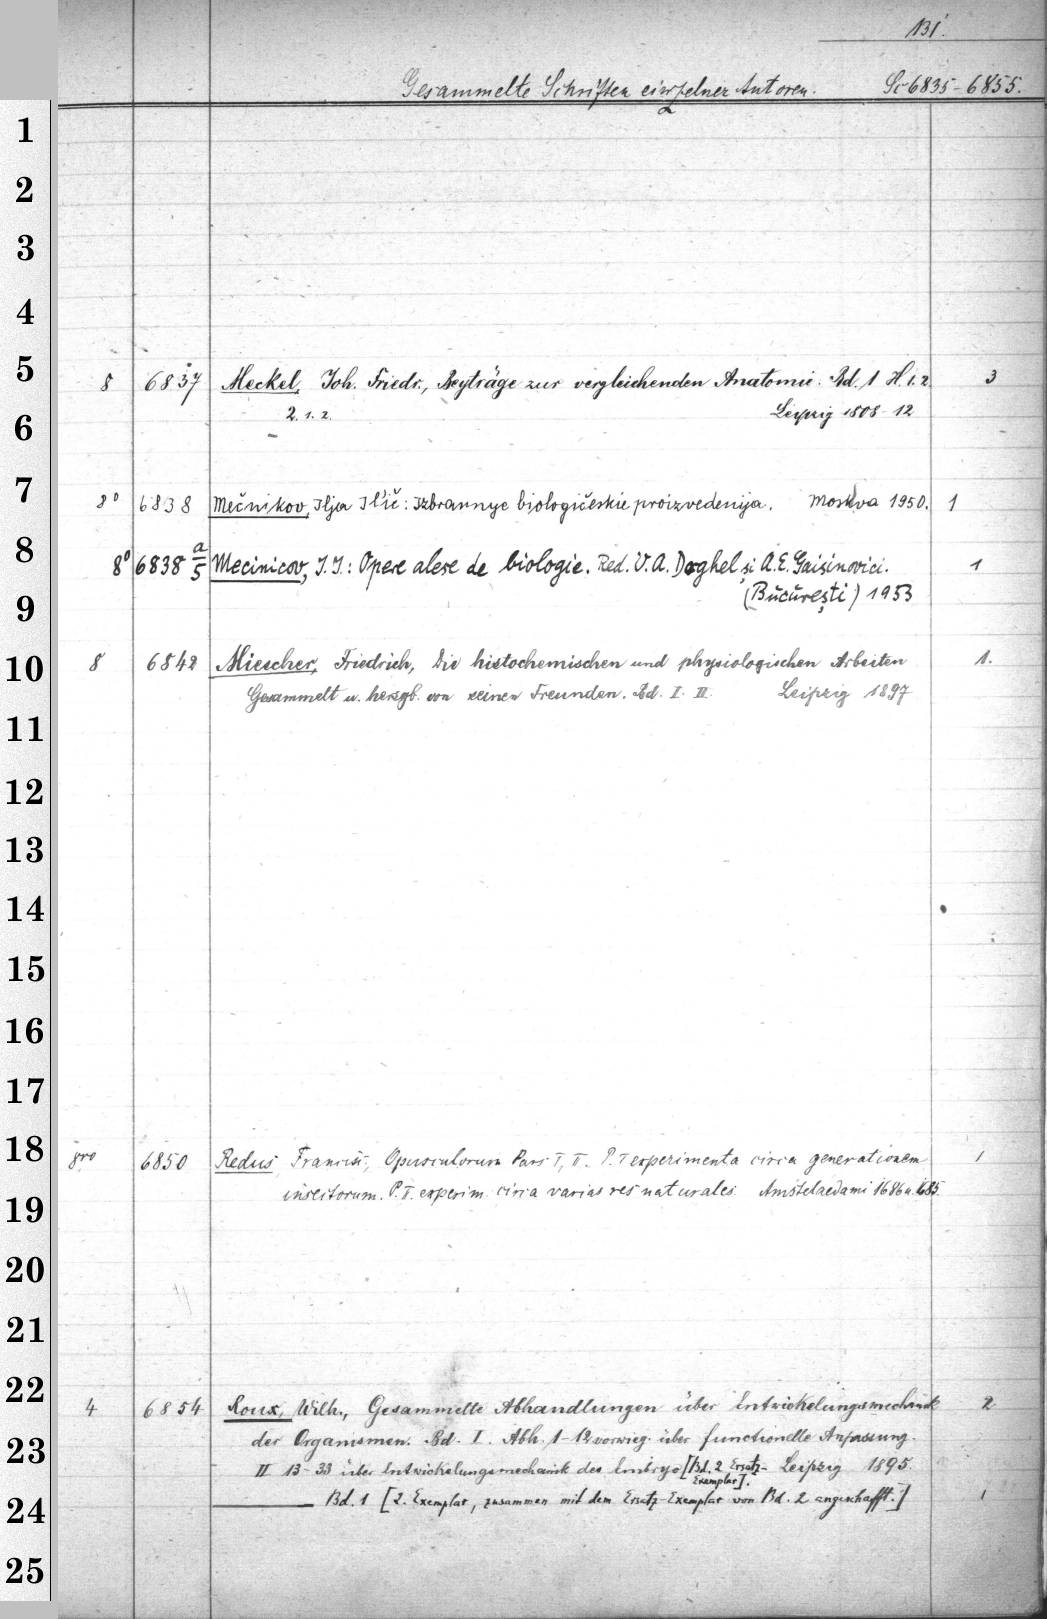 131.
Gesammelte Schriften einzelner Autoren. Sc 6835-6855.
1
2
3
4
5
8 6837 Meckel, Joh. Friedr., Beyträge zur vergleichenden Anatomie. Bd. 1 H. 1. 2. 3
2. 1. 2. Leipzig 1808-12
6
7
8° 6838 Mečnikov, Ilja Il'ič: Izbrannye biologičeskie proizvedenija. Moskva 1950. 1
8
8° 6838 a/5 Mecinicov, I. I.: Opere alese de biologie. Red. V. A. Doghel și A. E. Gaisinovici. 1
(București) 1953
9
10
8 6842 Miescher, Friedrich, Die histochemischen und physiologischen Arbeiten 1.
Gesammelt u. hersgb. von seinen Freunden. Bd. I. II. Leipzig 1897
11
12
13
14
15
16
17
18
8vo 6850 Redus Francisi, Opusculorum Pars I, II. P. I experimenta circa generationem 1
insectorum. P. II. experim. circa varias res naturales. Amstelaedami 1686 u. 1685.
19
20
21
22
4 6854 Roux, Wilh., Gesammelte Abhandlungen über Entwickelungsmechanik 2
der Organismen. Bd. I. Abh. 1-12 vorwieg. über functionelle Anpassung.
23
II 13-33 über Entwickelungsmechanik des Embryo [Bd. 2 Ersatz- Leipzig 1895.
Exemplar].
24
Bd. 1 [2. Exemplar, zusammen mit dem Ersatz-Exemplar von Bd. 2 angeschafft.] 1
25